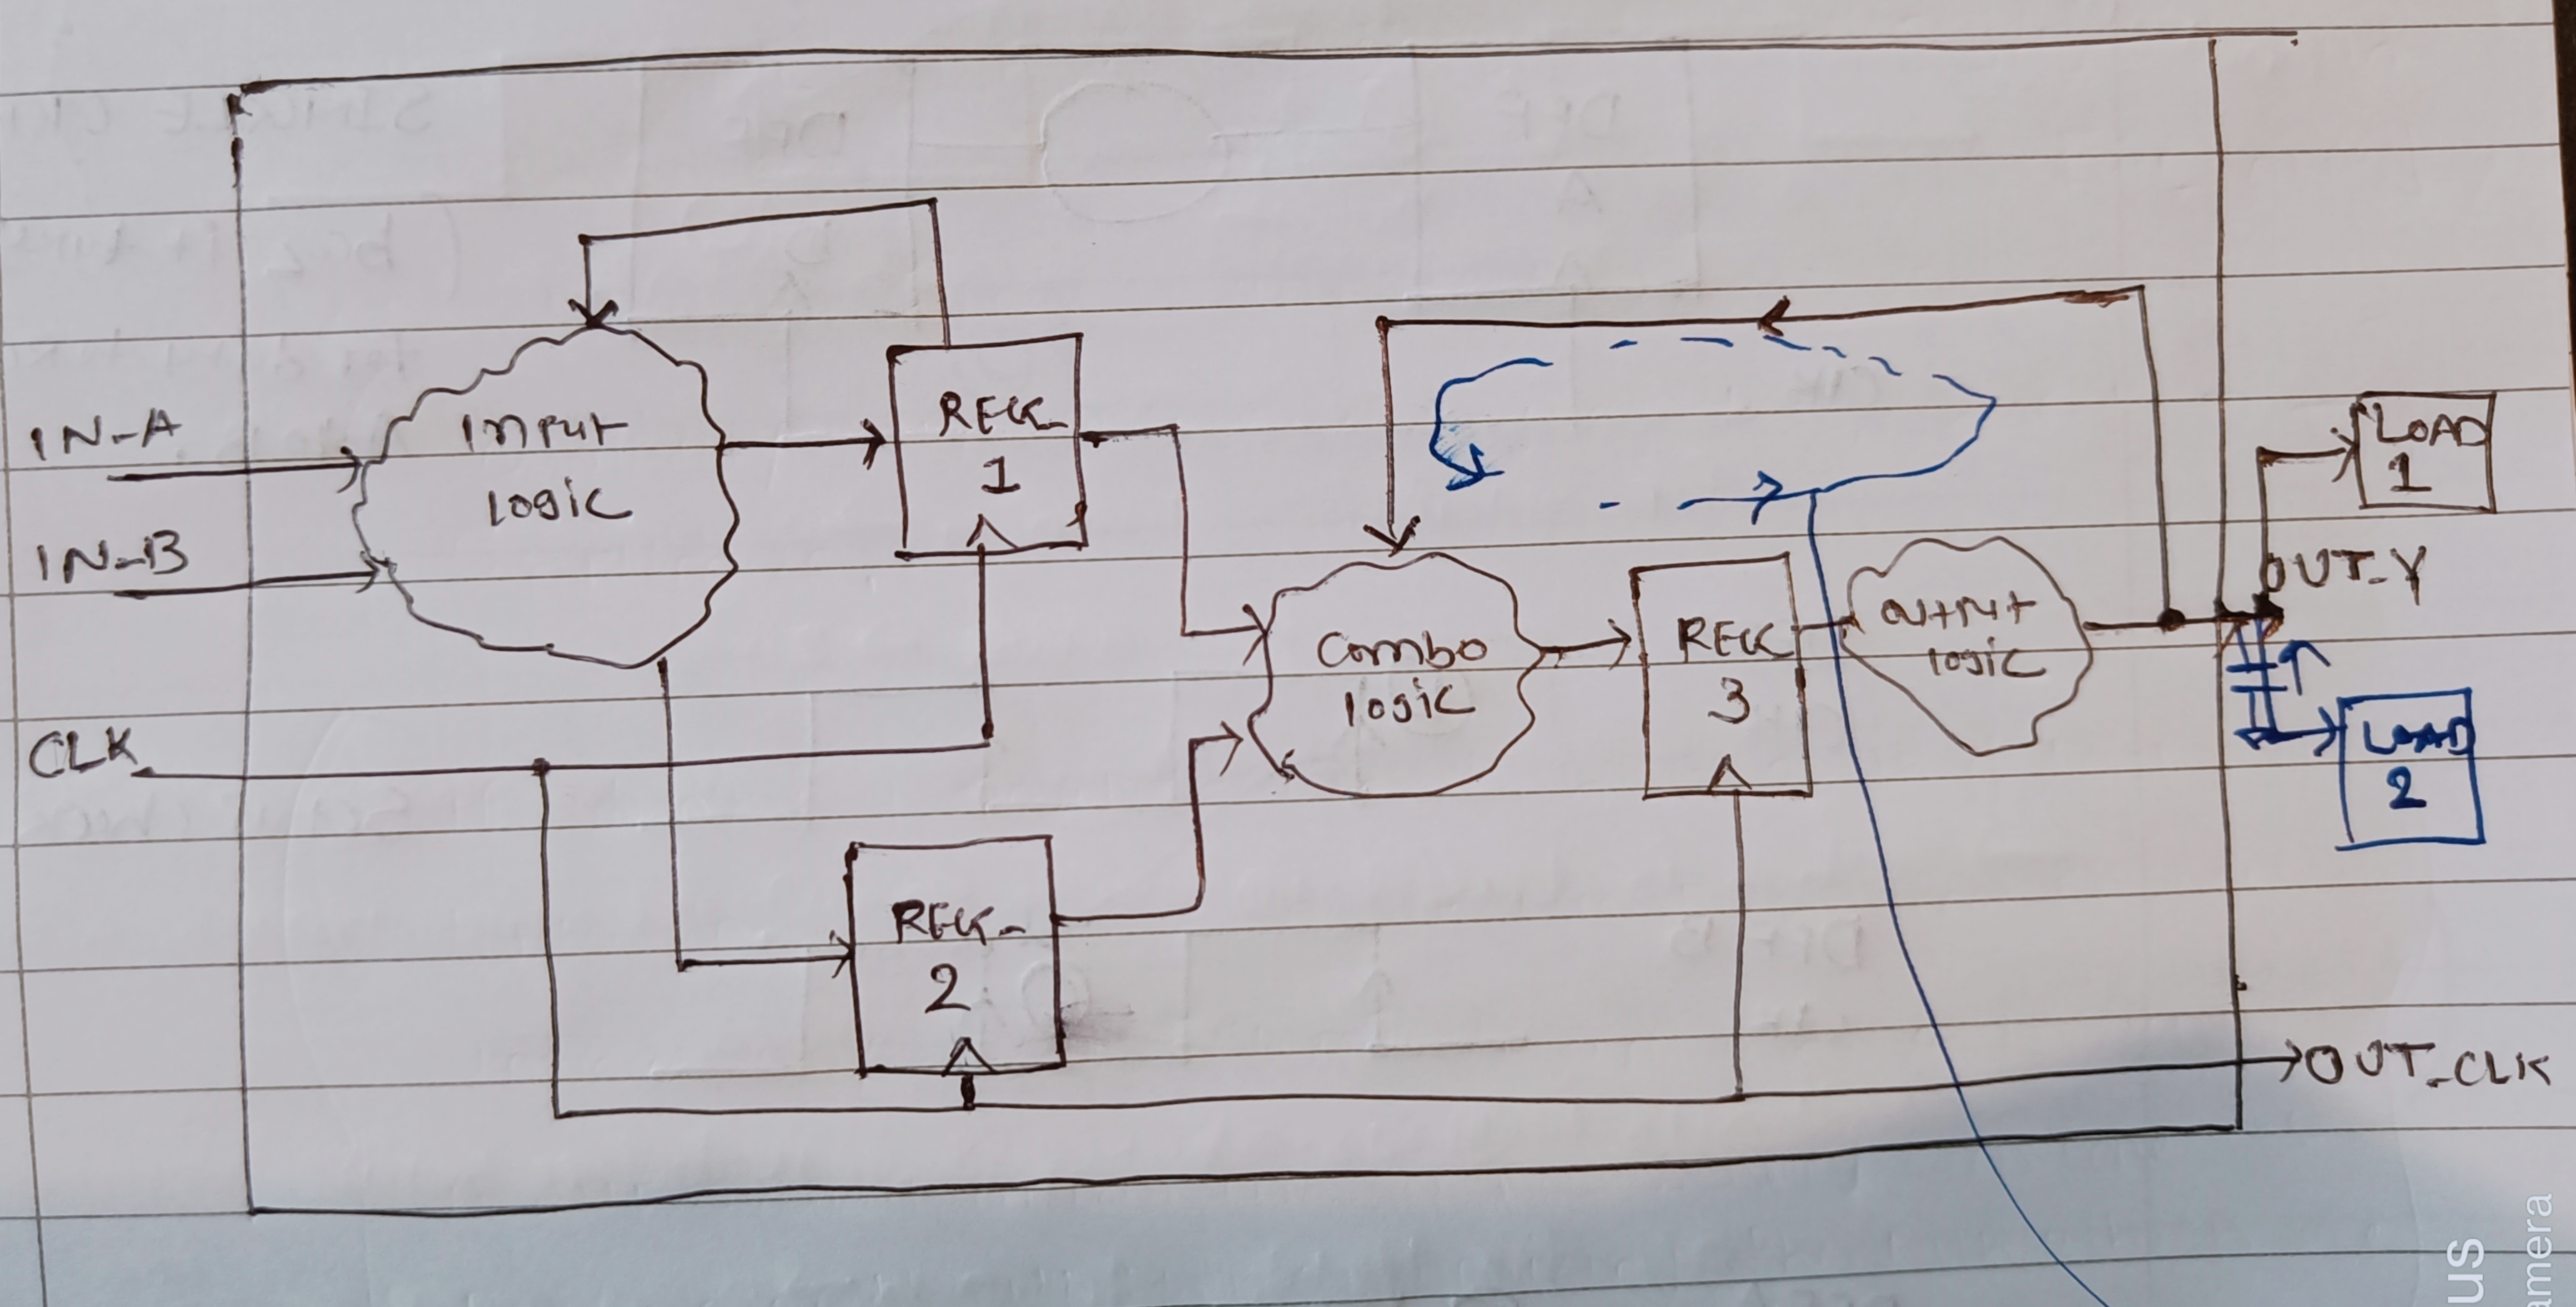 IN-A
IN-B
CLK
Input
logic
REG-
1
REG-
2
Combo
logic
REG
3
output
logic
LOAD
1
OUT-Y
LOAD
2
OUT-CLK
us
amera